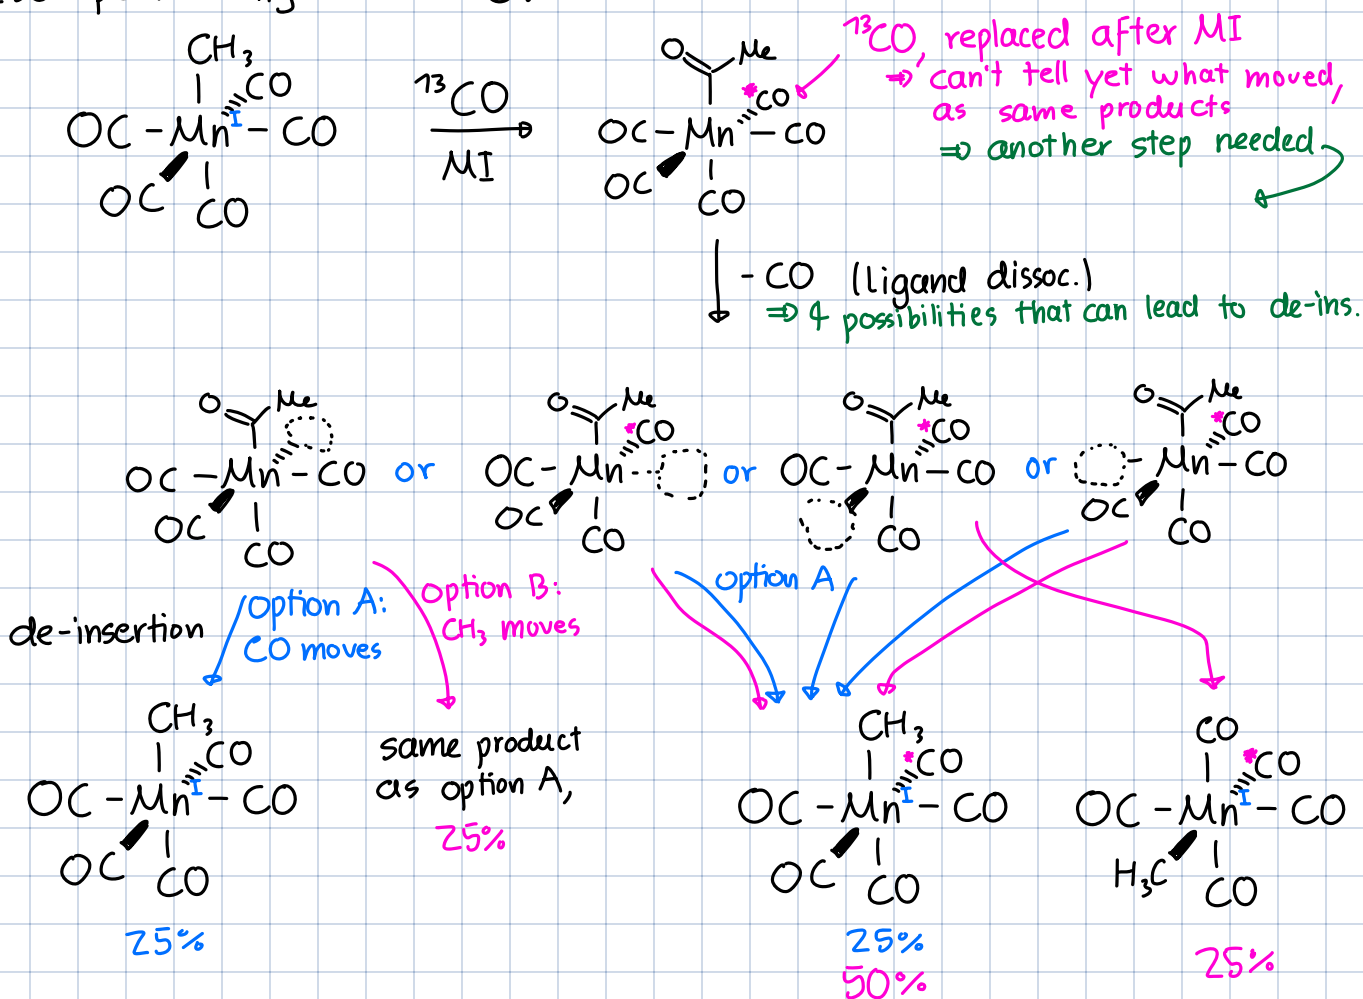 CH₃
CO
OC - Mn I - CO
OC CO
¹³CO
MI
O Me
*CO
OC - Mn - CO
OC CO
¹³CO, replaced after MI
⇒ can't tell yet what moved,
as same products
⇒ another step needed
- CO (ligand dissoc.)
⇒ 4 possibilities that can lead to de-ins.
O Me
OC - Mn - CO
OC CO
or
O Me
*CO
OC - Mn
OC CO
or
O Me
*CO
OC - Mn - CO
CO
or
O Me
*CO
Mn - CO
OC CO
de-insertion
Option A:
CO moves
Option B:
CH₃ moves
Option A
CH₃
CO
OC - Mn I - CO
OC CO
25%
same product
as option A,
25%
CH₃
*CO
OC - Mn I - CO
OC CO
25%
50%
CO
*CO
OC - Mn I - CO
H₃C CO
25%